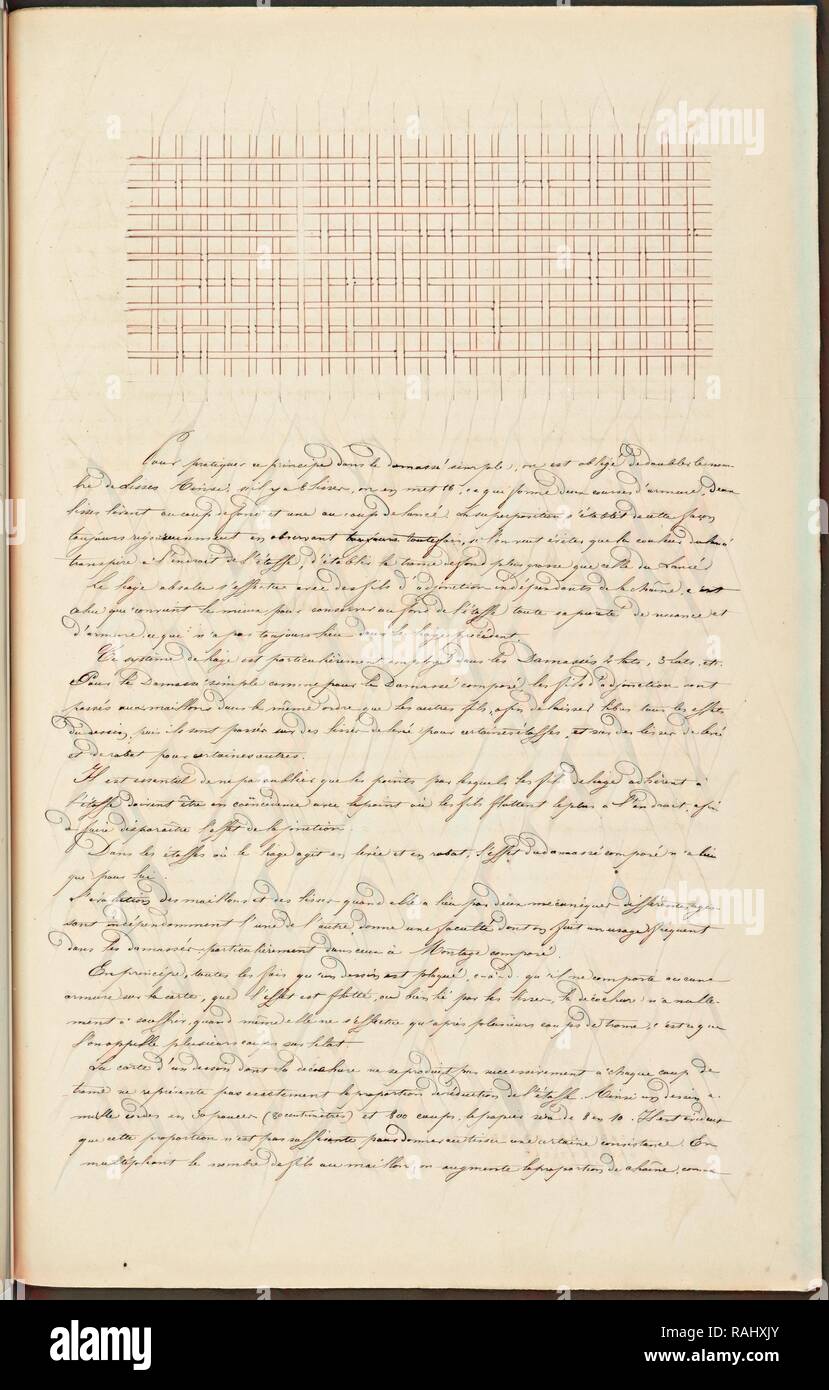 Pour pratiquer ce principe dans le damassé simple, on est obligé de doubler le nom-
bre de Lisses. Ainsi, s'il y a 8 lisses, on en met 16, ce qui forme deux courses d'armure, deux
lisses lèvent au coup de fond et une au coup de lancé. La superposition s'établit de cette façon
toujours rigoureusement en observant toutefois, si l'on veut éviter que la couleur du lancé
transpire à l'endroit de l'étoffe, d'établir la trame de fond plus grosse que celle du Lancé.
Le liage absolu s'effectue avec des fils d'adjonction indépendants de la chaîne, c'est
celui qui convient le mieux pour conserver au fond de l'étoffe toute sa pureté de nuance et
d'armure, ce qui n'a pas toujours lieu dans le liage précédent.
Ce système de liage est particulièrement employé dans les Damassés 2 lats, 3 lats, etc.
Pour le Damassé simple comme pour le Damassé composé, les fils d'adjonction sont
passés aux maillons dans le même ordre que les autres fils, afin de laisser libres tous les effets
du dessin, puis ils sont passés sur des lisses de levée pour certaines étoffes, et sur des lisses de levée
et de rabat pour certaines autres.
Il est essentiel de ne pas oublier que les points par lesquels les fils de liage adhèrent à
l'étoffe doivent être en coïncidence avec le point où les fils flottent le plus à l'endroit, afin
de faire disparaître l'effet de la jonction.
Dans les étoffes où le liage agit en levée et en rabat, l'effet du damassé composé n'a lieu
que pour lui.
L'évolution des maillons et des lisses quand elle a lieu par deux mécaniques différentes, agis-
sant indépendamment l'une de l'autre, donne une faculté dont on fait un usage fréquent
dans les damassés, particulièrement dans ceux à Montage composé.
En principe, toutes les fois qu'un dessin est plaqué, c.à.d. qu'il ne comporte aucune
armure sur la carte, que l'effet est flotté, ou bien lié par les lisses, la découpure n'a nulle-
ment à souffrir, quand même elle ne s'effectue qu'après plusieurs coups de trame, c'est ce que
l'on appelle plusieurs coups sur le lat.
La carte d'un dessin dont la découpure ne se produit pas successivement à chaque coup de
trame ne représente pas exactement la proportion de réduction de l'étoffe. Ainsi un dessin a
mille cordes en 30 pouces (80 centimètres) et 800 coups, le papier sera de 8 en 10. Il est évident
que cette proportion n'est pas suffisante pour donner au tissu une certaine consistance. En
multipliant le nombre de fils au maillon, on augmente la proportion de chaîne, comme
alamy
alamy
alamy
alamy
alamy
Image ID: RAHXJY
www.alamy.com